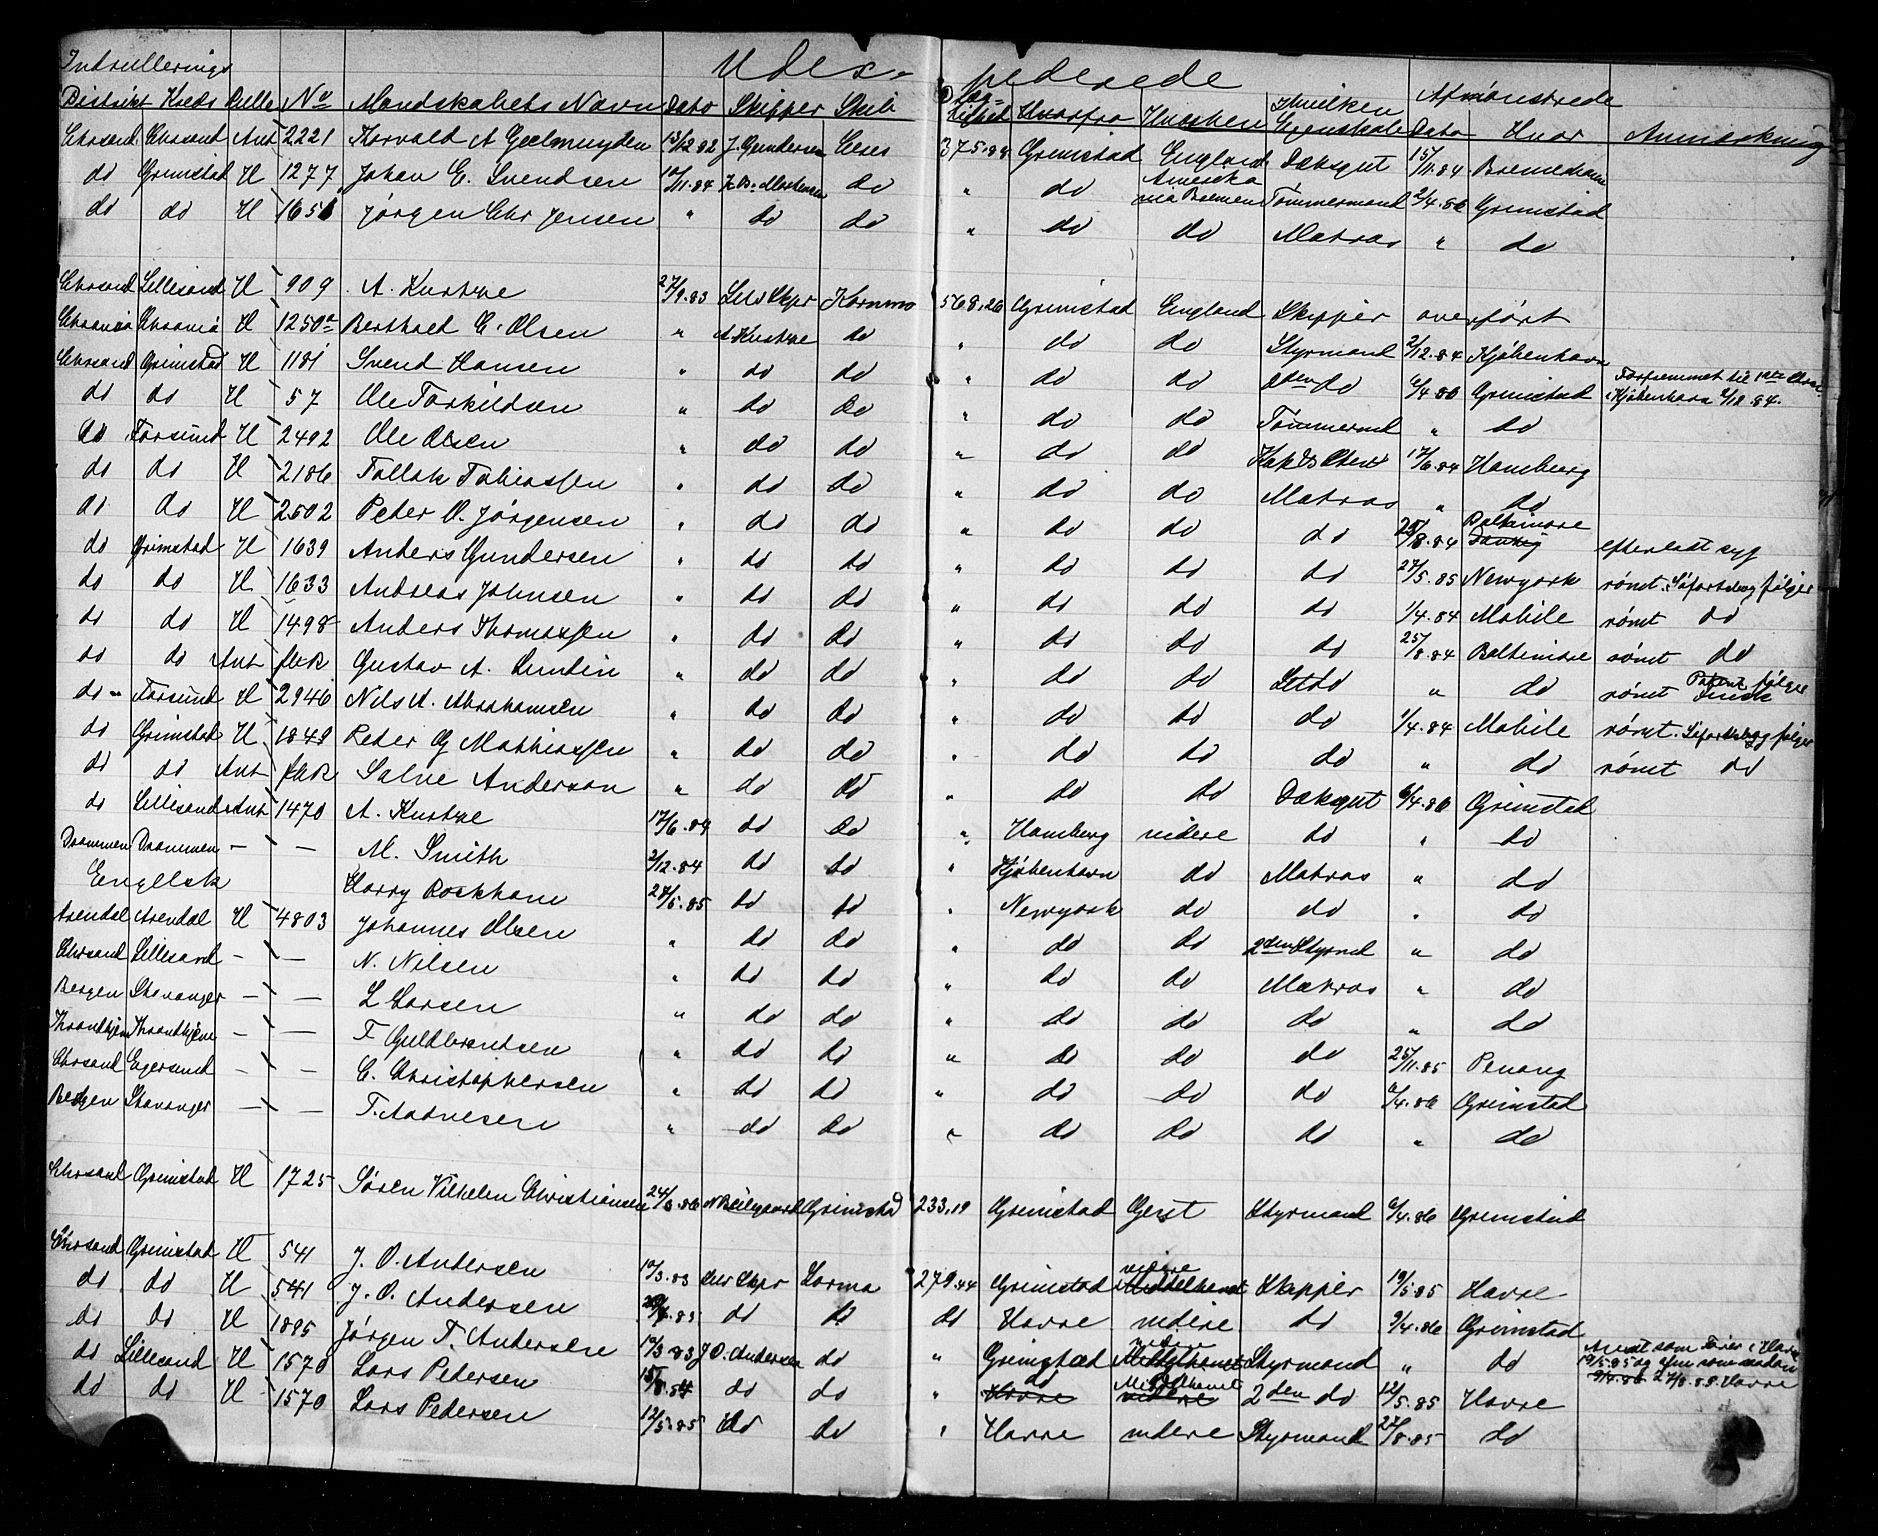 Indrullerings Udex- pederede
Distrikt Kreds Rulle No Mandskabets Navn Dato Skipper Skib Dræg-tighed Hvorfra Hvorhen Hvilken Egenskab Afmønstrede Dato Hvor Anmærkning
Chrsand Chrsand Ant 2221 Thorvald A Geelmuyden 13/12 82 J. Gundersen Ceres 375.84 Grimstad England Dæksgut 15/11.84 Bremerhaven
do Grimstad H 1277 Johan E. Svendsen 10/11.84 do " do Amerika via Bremen Tømmermand 2/4.86 Grimstad
do do H 1651 Jørgen Chr Jensen " do do " do do Matros " do
Chrsand Lillesand H 909 A. Kustye 27/9.83 Selv Skpr 568,26 Grimstad England Skipper overført
Chrania Chrania H 1250a Berthold C. Olsen " A Kustye do " do do Styrmand 2/12.84 Kjøbenhavn
Chrsand Grimstad H 1181 Svend Hansen " do do " do do 2den do 6/4.86 Grimstad Forfremmet til 1ste Kjøbenhavn 2/12.84.
do do H 57 Ole Torkildsen " do do " do do Tømmermd " do
do Farsund H 2492 Ole Olsen " do do " do do 17/6.84 Hamburg
do do H 2186 Tollak Tobiassen " do do " do do Matros " do
do do H 2502 Peter O. Jørgensen " do do " do do do 25/8.84 Baltimore Danzig efterladt syg
do Grimstad H 1639 Anders Gundersen " do do " do do do 27/5.85 Newyork rømt. Søfartsbog følger
do do H 1633 Andreas Johnsen " do do " do do do 1/4.84 Mobile rømt do
do do H 1498 Anders Thomassen " do do " do do do 25/8.84 Baltimore rømt do
do do Ant Gustav A. Lundin " do do " do do " do rømt følger
do Farsund H 2946 Nils A. Abrahamsen " do do " do do do 1/4.84 Mobile rømt. Søfartsbog følger
do Grimstad H 1849 Peter G Mathiassen " do do " do do do " do rømt do
do do Ant Salve Anderson " do do " do do Dæksgut 6/4.86 Grimstad
do Lillesand Ant 1470 A. Kustye 17/6.84 do do " Hamburg videre do " do
Drammen Drammen — — M. Smith 2/12.84 do do " Kjøbenhavn do Matros " do
Engelsk Harry Rockham 27/5.85 do do " Newyork do do " do
Arendal Arendal H 4803 Johannes Olsen " do do " do do 2den Styrmd " do
Chrsand Lillesand — — N. Nilsen " do do " do do Matros " do
Bergen Stavanger — — L Larsen " do do " do do do " do
Throndhjem Throndhjem — — T Guldbrandsen " do do " do do do 25/11.85 Penang
Chrsand Egersund — — C. Christophersen " do do " do do do 6/4.86 Grimstad
Bergen Stavanger — — T. Aadnesen " do do " do do do " do
Chrsand Grimstad H 1725 Søren Vilhelm Christiansen 24/3.86 Grimstad 233,19 Grimstad Gerst Styrmand 6/4.86 Grimstad
Chrsand Grimstad H 541 J. O. Andersen 10/3.83 Selv Skpr Lorma 279.44 Grimstad videre Middelhavet Skipper 19/5.85 Havre
do do H 541 J. O. Andersen do do do Havre videre do 9/4.86 Grimstad
do do H 1895 Jørgen T. Andersen 10/3 83 J O. Andersen do " Grimstad videre Middelhavet Styrmand " do
do Lillesand H 1570 Lars Pedersen do do " do Havre Middelhavet videre 2den do 12/5.85 Havre
do do H 1570 Lars Pedersen 12/5.85 do do " Havre videre Styrmand 27/8.85 do